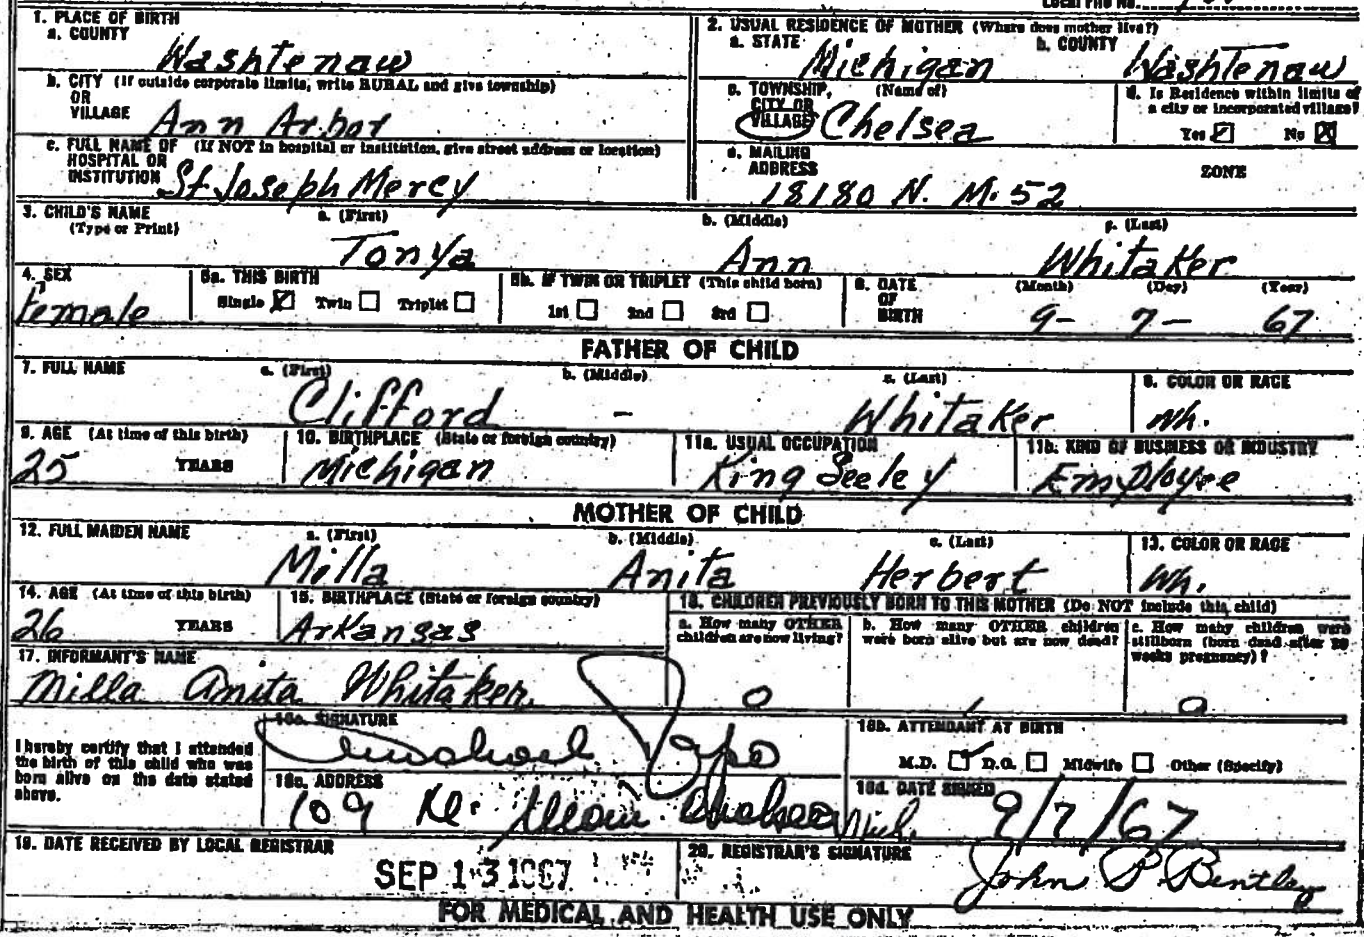 LOCAL FILE NO.
1. PLACE OF BIRTH
a. COUNTY
Washtenaw
b. CITY (If outside corporate limits, write RURAL and give township)
OR
VILLAGE Ann Arbor
c. FULL NAME OF (If NOT in hospital or institution, give street address or location)
HOSPITAL OR
INSTITUTION St Joseph Mercy
2. USUAL RESIDENCE OF MOTHER (Where does mother live?)
a. STATE Michigan b. COUNTY Washtenaw
c. TOWNSHIP, (Name of)
CITY OR
VILLAGE Chelsea
d. Is Residence within limits of
a city or incorporated village?
Yes No
e. MAILING
ADDRESS ZONE
18180 N. M. 52
3. CHILD'S NAME a. (First) b. (Middle) c. (Last)
(Type or Print)
Tonya Ann Whitaker
4. SEX
Female
5a. THIS BIRTH
Single Twin Triplet
5b. IF TWIN OR TRIPLET (This child born)
1st 2nd 3rd
6. DATE (Month) (Day) (Year)
OF
BIRTH 9- 7- 67
FATHER OF CHILD
7. FULL NAME a. (First) b. (Middle) c. (Last)
Clifford - Whitaker
8. COLOR OR RACE
Wh.
9. AGE (At time of this birth)
25 YEARS
10. BIRTHPLACE (State or foreign country)
Michigan
11a. USUAL OCCUPATION
King Seeley
11b. KIND OF BUSINESS OR INDUSTRY
Employee
MOTHER OF CHILD
12. FULL MAIDEN NAME a. (First) b. (Middle) c. (Last)
Milla Anita Herbert
13. COLOR OR RACE
Wh.
14. AGE (At time of this birth)
26 YEARS
15. BIRTHPLACE (State or foreign country)
Arkansas
16. CHILDREN PREVIOUSLY BORN TO THIS MOTHER (Do NOT include this child)
a. How many OTHER
children are now living?
0
b. How many OTHER children
were born alive but are now dead?
1
c. How many children were
stillborn (born dead after 20
weeks pregnancy)?
0
17. INFORMANT'S NAME
Milla Anita Whitaker
I hereby certify that I attended
the birth of this child who was
born alive on the date stated
above.
18a. SIGNATURE
Papo
18b. ATTENDANT AT BIRTH
M.D. D.O. Midwife Other (Specify)
18c. ADDRESS
109 Chelsea Mich.
18d. DATE SIGNED
9/7/67
19. DATE RECEIVED BY LOCAL REGISTRAR
SEP 13 1967
20. REGISTRAR'S SIGNATURE
John P. Bentley
FOR MEDICAL AND HEALTH USE ONLY